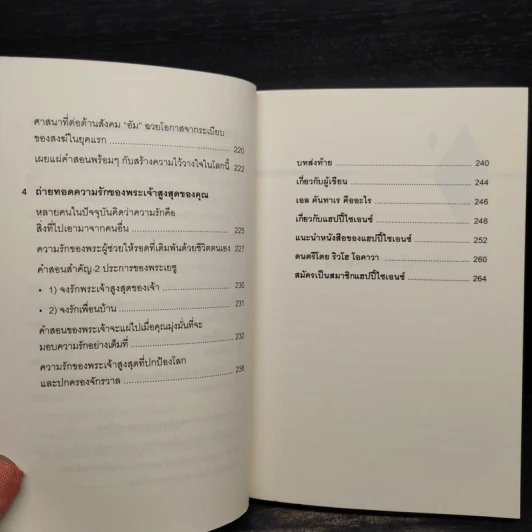 ศาสนาที่ต่อต้านสังคม "อัม" ฉวยโอกาสจากระเบียบ
ของสงฆ์ในยุคแรก 220
เผยแผ่คำสอนพร้อมๆ กับสร้างความไว้วางใจในโลกนี้ 222
4 ถ่ายทอดความรักของพระเจ้าสูงสุดของคุณ
หลายคนในปัจจุบันคิดว่าความรักคือ
สิ่งที่ไปเอามาจากคนอื่น 225
ความรักของพระผู้ช่วยให้รอดที่เดิมพันด้วยชีวิตตนเอง 227
คำสอนสำคัญ 2 ประการของพระเยซู
• 1) จงรักพระเจ้าสูงสุดของเจ้า 230
• 2) จงรักเพื่อนบ้าน 231
คำสอนของพระเจ้าจะแผ่ไปเมื่อคุณมุ่งมั่นที่จะ
มอบความรักอย่างเต็มที่ 232
ความรักของพระเจ้าสูงสุดที่ปกป้องโลก
และปกครองจักรวาล 236
บทส่งท้าย 240
เกี่ยวกับผู้เขียน 244
เอล คันทาเร คืออะไร 246
เกี่ยวกับแฮปปี้ไซเอนซ์ 248
แนะนำหนังสือของแฮปปี้ไซเอนซ์ 252
ดนตรีโดย ริวโฮ โอคาวา 260
สมัครเป็นสมาชิกแฮปปี้ไซเอนซ์ 264